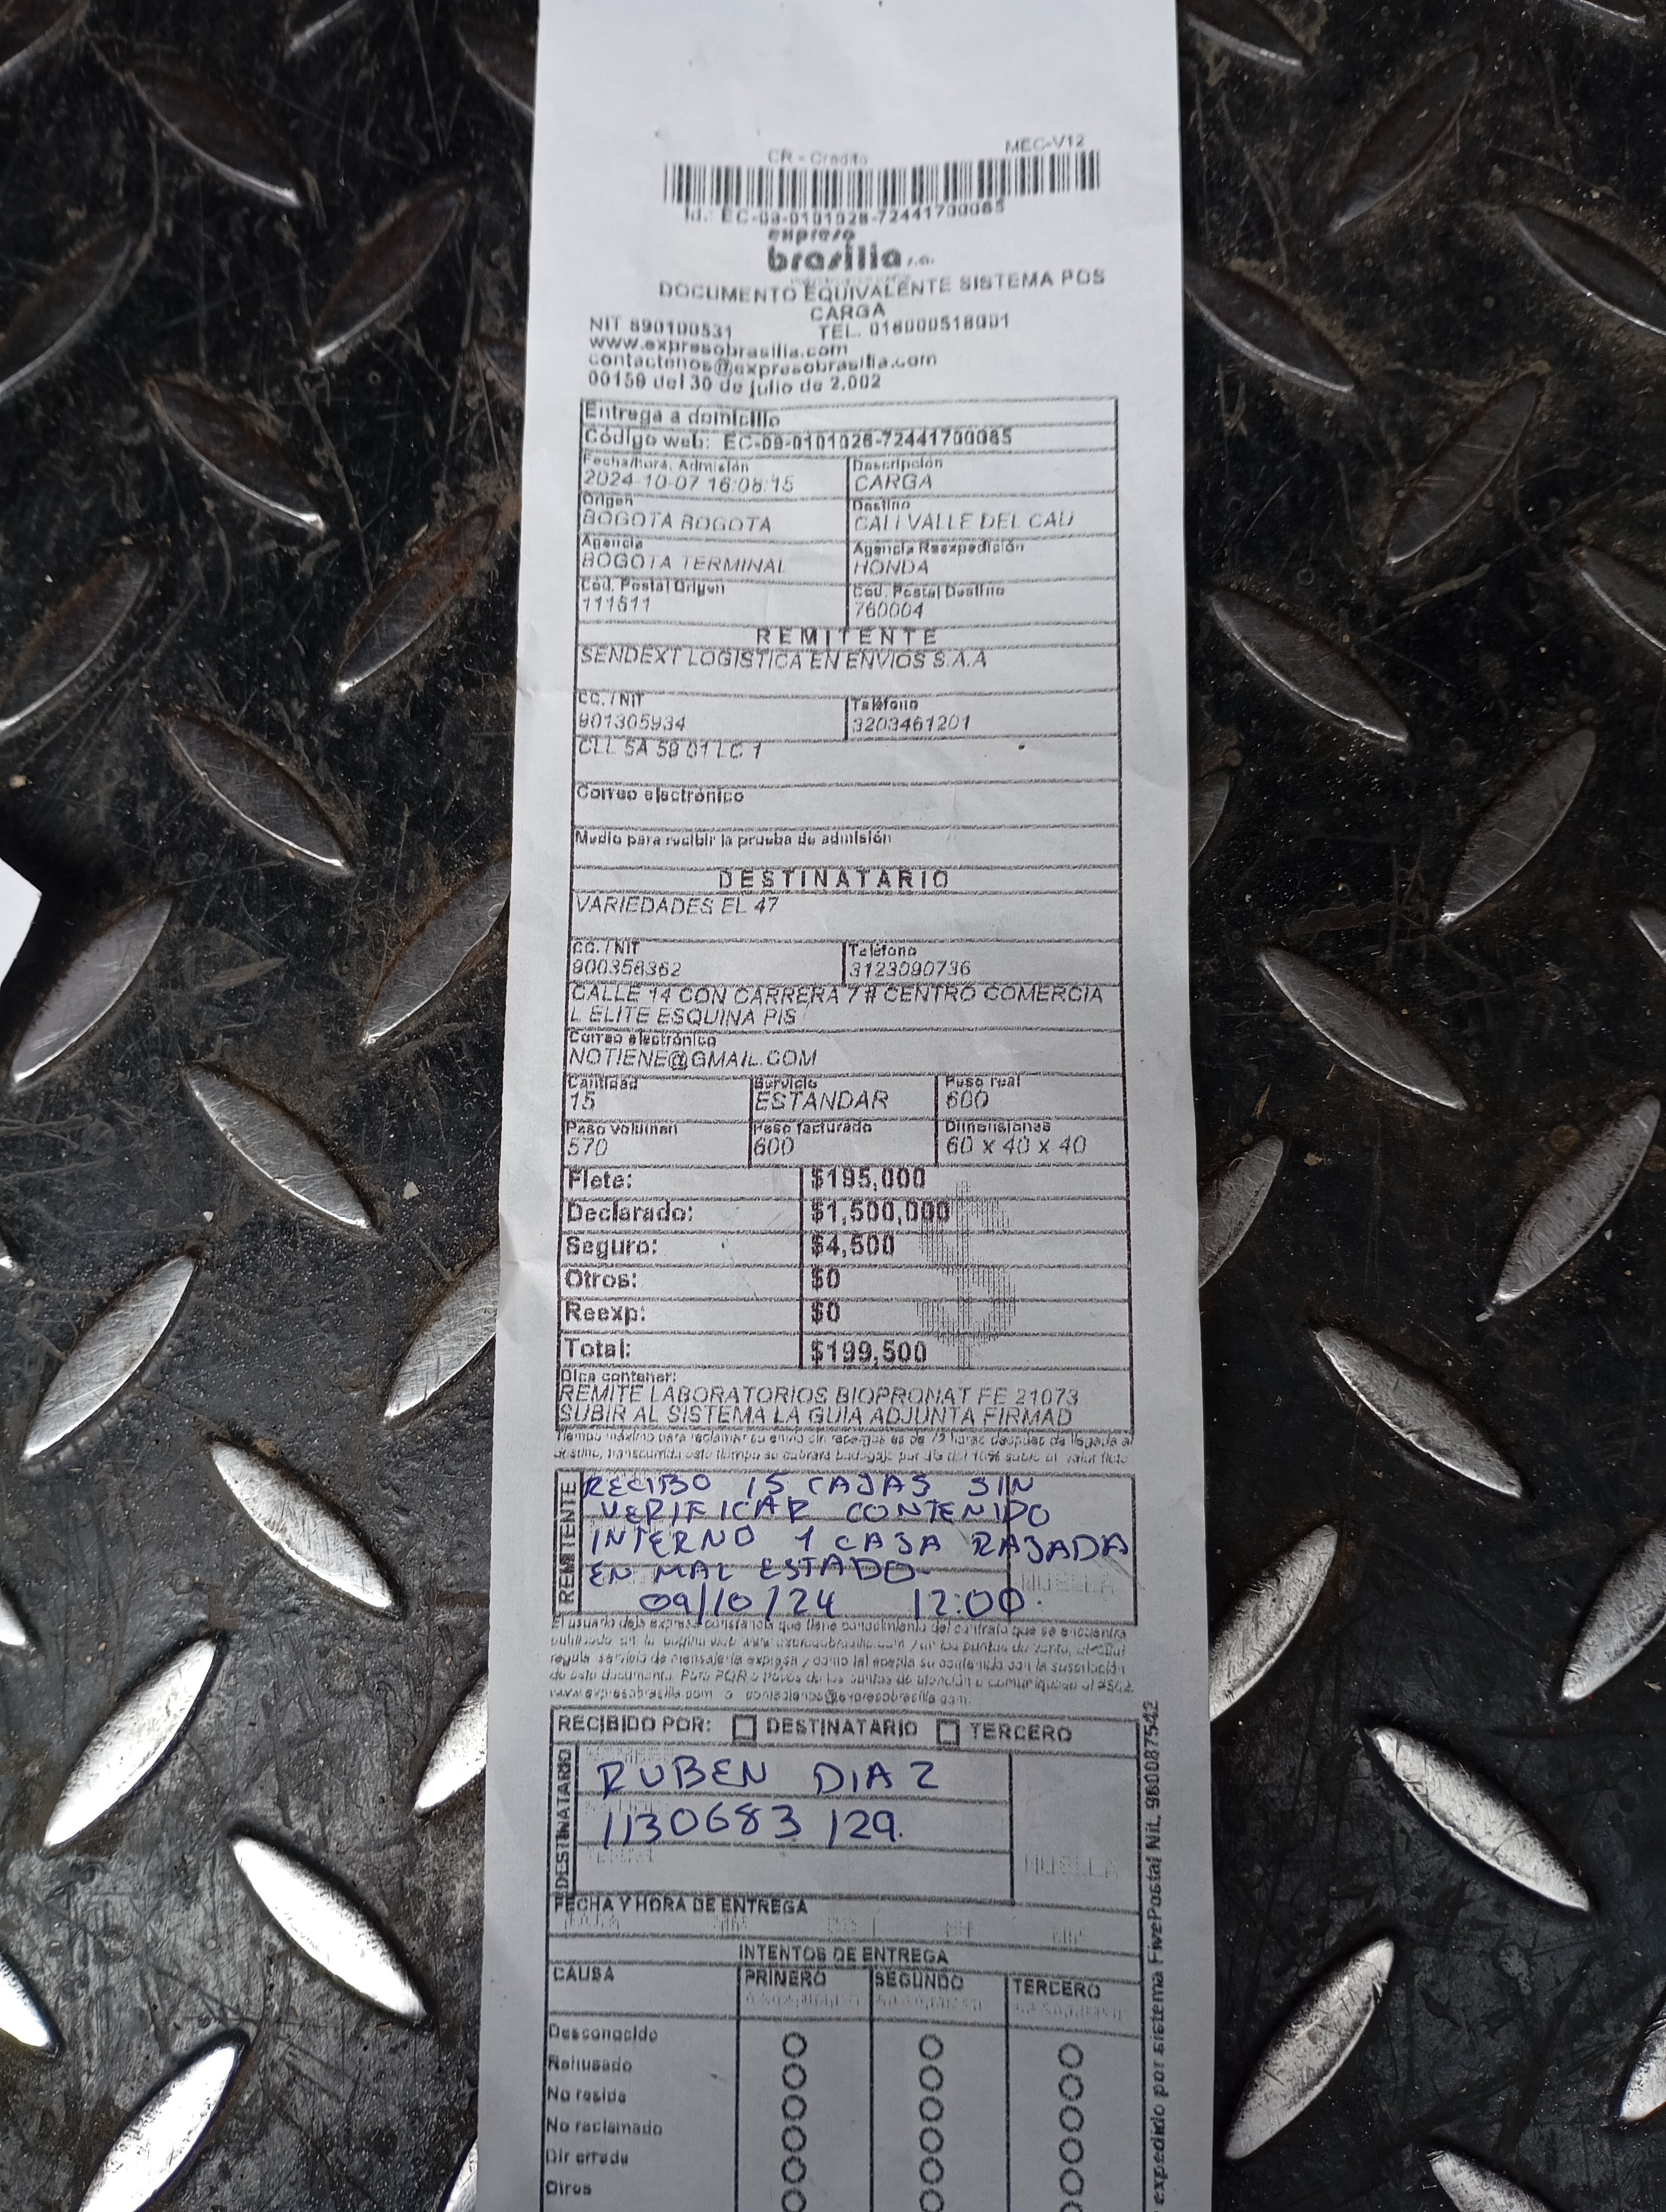 CR - Credito
MEC-V12
Id.: EC-09-0101028-72441700085
expreso
brasilia s.a.
DOCUMENTO EQUIVALENTE SISTEMA POS
CARGA
NIT 890100531 TEL. 018000518001
www.expresobrasilia.com
contactenos@expresobrasilia.com
00150 del 30 de julio de 2.002
Entrega a domicilio
Código web: EC-09-0101028-72441700085
Fecha/hora. Admisión Descripción
2024-10-07 16:08:15 CARGA
Origen Destino
BOGOTA BOGOTA CALI VALLE DEL CAU
Agencia Agencia Reexpedición
BOGOTA TERMINAL HONDA
Cód. Postal Origen Cod. Postal Destino
111611 760004
REMITENTE
SENDEXT LOGISTICA EN ENVIOS S.A.A
CC. / NIT Teléfono
901305934 3203461201
CLL 5A 59 01 LC 1
Correo electrónico
Medio para recibir la prueba de admisión
DESTINATARIO
VARIEDADES EL 47
CC. / NIT Teléfono
900358362 3123090736
CALLE 14 CON CARRERA 7 # CENTRO COMERCIA
L ELITE ESQUINA PIS
Correo electrónico
NOTIENE@GMAIL.COM
Cantidad Servicio Peso real
15 ESTANDAR 600
Peso volumen Peso facturado Dimensiones
570 600 60 x 40 x 40
Flete: $195,000
Declarado: $1,500,000
Seguro: $4,500
Otros: $0
Reexp: $0
Total: $199,500
Dice contener:
REMITE LABORATORIOS BIOPRONAT FE 21073
SUBIR AL SISTEMA LA GUIA ADJUNTA FIRMAD
Tiempo máximo para reclamar su envio sin recargos es de 72 horas después de llegada al
destino, transcurrido este tiempo se cobrará bodegaje por día del 10% sobre el valor flete
REMITENTE
RECIBO 15 CAJAS SIN
VERIFICAR CONTENIDO
INTERNO 1 CAJA RAJADA
EN MAL ESTADO
09/10/24 12:00.
HUELLA
El usuario deja expresa constancia que tiene conocimiento del contrato que se encuentra
publicado en la página web www.expresobrasilia.com y en los puntos de venta, el cual
regula servicio de mensajería expresa y como tal acepta su contenido con la suscripción
de este documento. Para PQR a través de los puntos de atención o comuníquese al
www.expresobrasilia.com o contactenos@expresobrasilia.com
RECIBIDO POR: DESTINATARIO TERCERO
DESTINATARIO
RUBEN DIAZ
1130683129.
HUELLA
FECHA Y HORA DE ENTREGA
INTENTOS DE ENTREGA
CAUSA PRIMERO SEGUNDO TERCERO
Desconocido
Rehusado
No reside
No reclamado
Dir errada
Otros
expedido por sistema FivePostal Nit. 9800087542